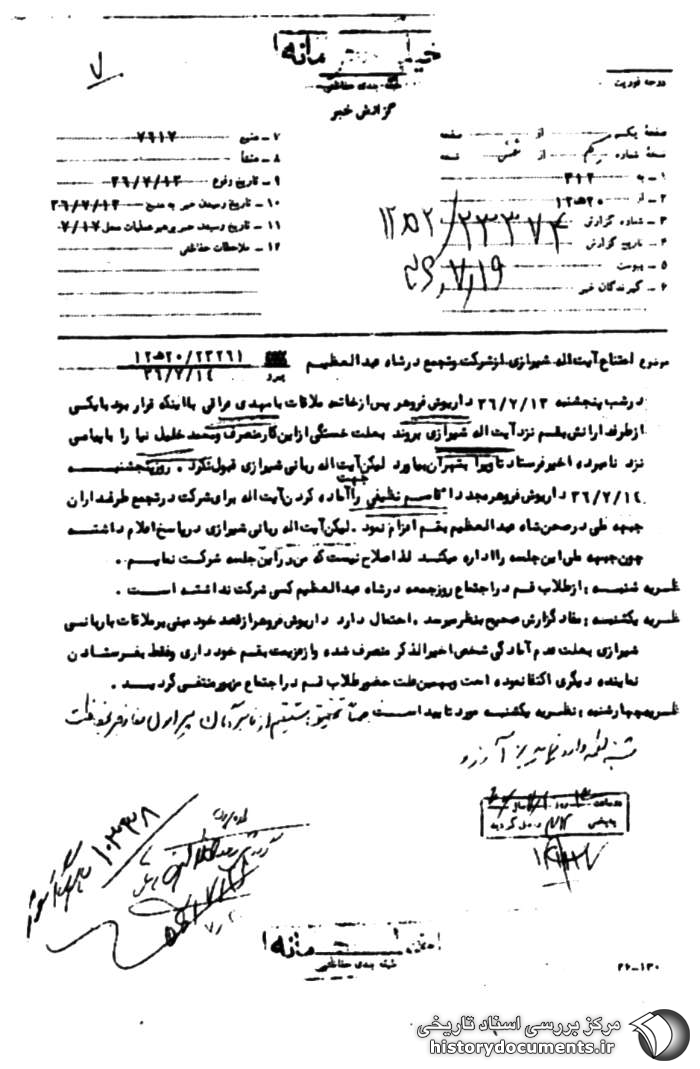 خیلی محرمانه
طبقه بندی حفاظتی
گزارش خبر
درجه فوریت
۷
صفحه یک از صفحه
نسخه شماره یکم از شش نسخه
۱ ـ به ۳۱۲
۲ ـ از ۲۰ه۱۲
۳ ـ شماره گزارش ۲۳۳۷۴/ ۲ه۱۲
۴ ـ تاریخ گزارش ۳۶٫۷٫۱۹
۵ ـ پیوست
۶ ـ گیرندگان خبر
۷ ـ منبع ۷۶۱۷
۸ ـ منشأ
۹ ـ تاریخ وقوع ۳۶/۷/۱۳
۱۰ ـ تاریخ رسیدن خبر به منبع ۳۶/۷/۱۳
۱۱ ـ تاریخ رسیدن خبر برهبر عملیات محل ۷/۱۷
۱۲ ـ ملاحظات حفاظتی
موضوع امتناع آیت اله شیرازی از شرکت و تجمع در شاه عبدالعظیم
۲۰ه۱۲/۲۳۲۶۱
پیرو ۳۶/۷/۱۴
در شب پنجشنبه ۳۶/۷/۱۳ داریوش فروهر پس از خاتمه ملاقات با مهدی عراقی با اینکه قرار بود با یکی
از طرفدارانش بقم نزد آیت اله شیرازی بروند بعلت خستگی از این کار منصرف و محمد خلیل نیا را با پیامی
نزد نامبرده اخیر فرستاد تا ویرا بتهران بیاورد لیکن آیت اله ربانی شیرازی قبول نکرد . روز پنجشنبه
۳۶/۷/۱۴ داریوش فروهر مجددا قاسم نظیفی را جهت آماده کردن آیت اله برای شرکت در تجمع طرفداران
جبهه ملی در صحن شاه عبدالعظیم بقم اعزام نمود . لیکن آیت اله ربانی شیرازی در پاسخ اعلام داشته
چون جبهه ملی این جلسه را اداره میکند لذا صلاح نیست که من در این جلسه شرکت نمایم .
نظریه شنبه : از طلاب قم در اجتماع روز جمعه در شاه عبدالعظیم کسی شرکت نداشته است .
نظریه یکشنبه : مفاد گزارش صحیح بنظر میرسد . احتمال دارد داریوش فروهر از قصد خود مبنی بر ملاقات با ربانی
شیرازی بعلت عدم آمادگی شخص اخیرالذکر منصرف شده و از عزیمت بقم خودداری و فقط بفرستادن
نماینده دیگری اکتفا نموده است و بهمین علت حضور طلاب قم در اجتماع مزبور منتفی گردید .
نظریه چهارشنبه : نظریه یکشنبه مورد تایید است
۱۰۳۳۸
خیلی محرمانه
طبقه بندی حفاظتی
۲۶-۱۳۰
مرکز بررسی اسناد تاریخی
historydocuments.ir